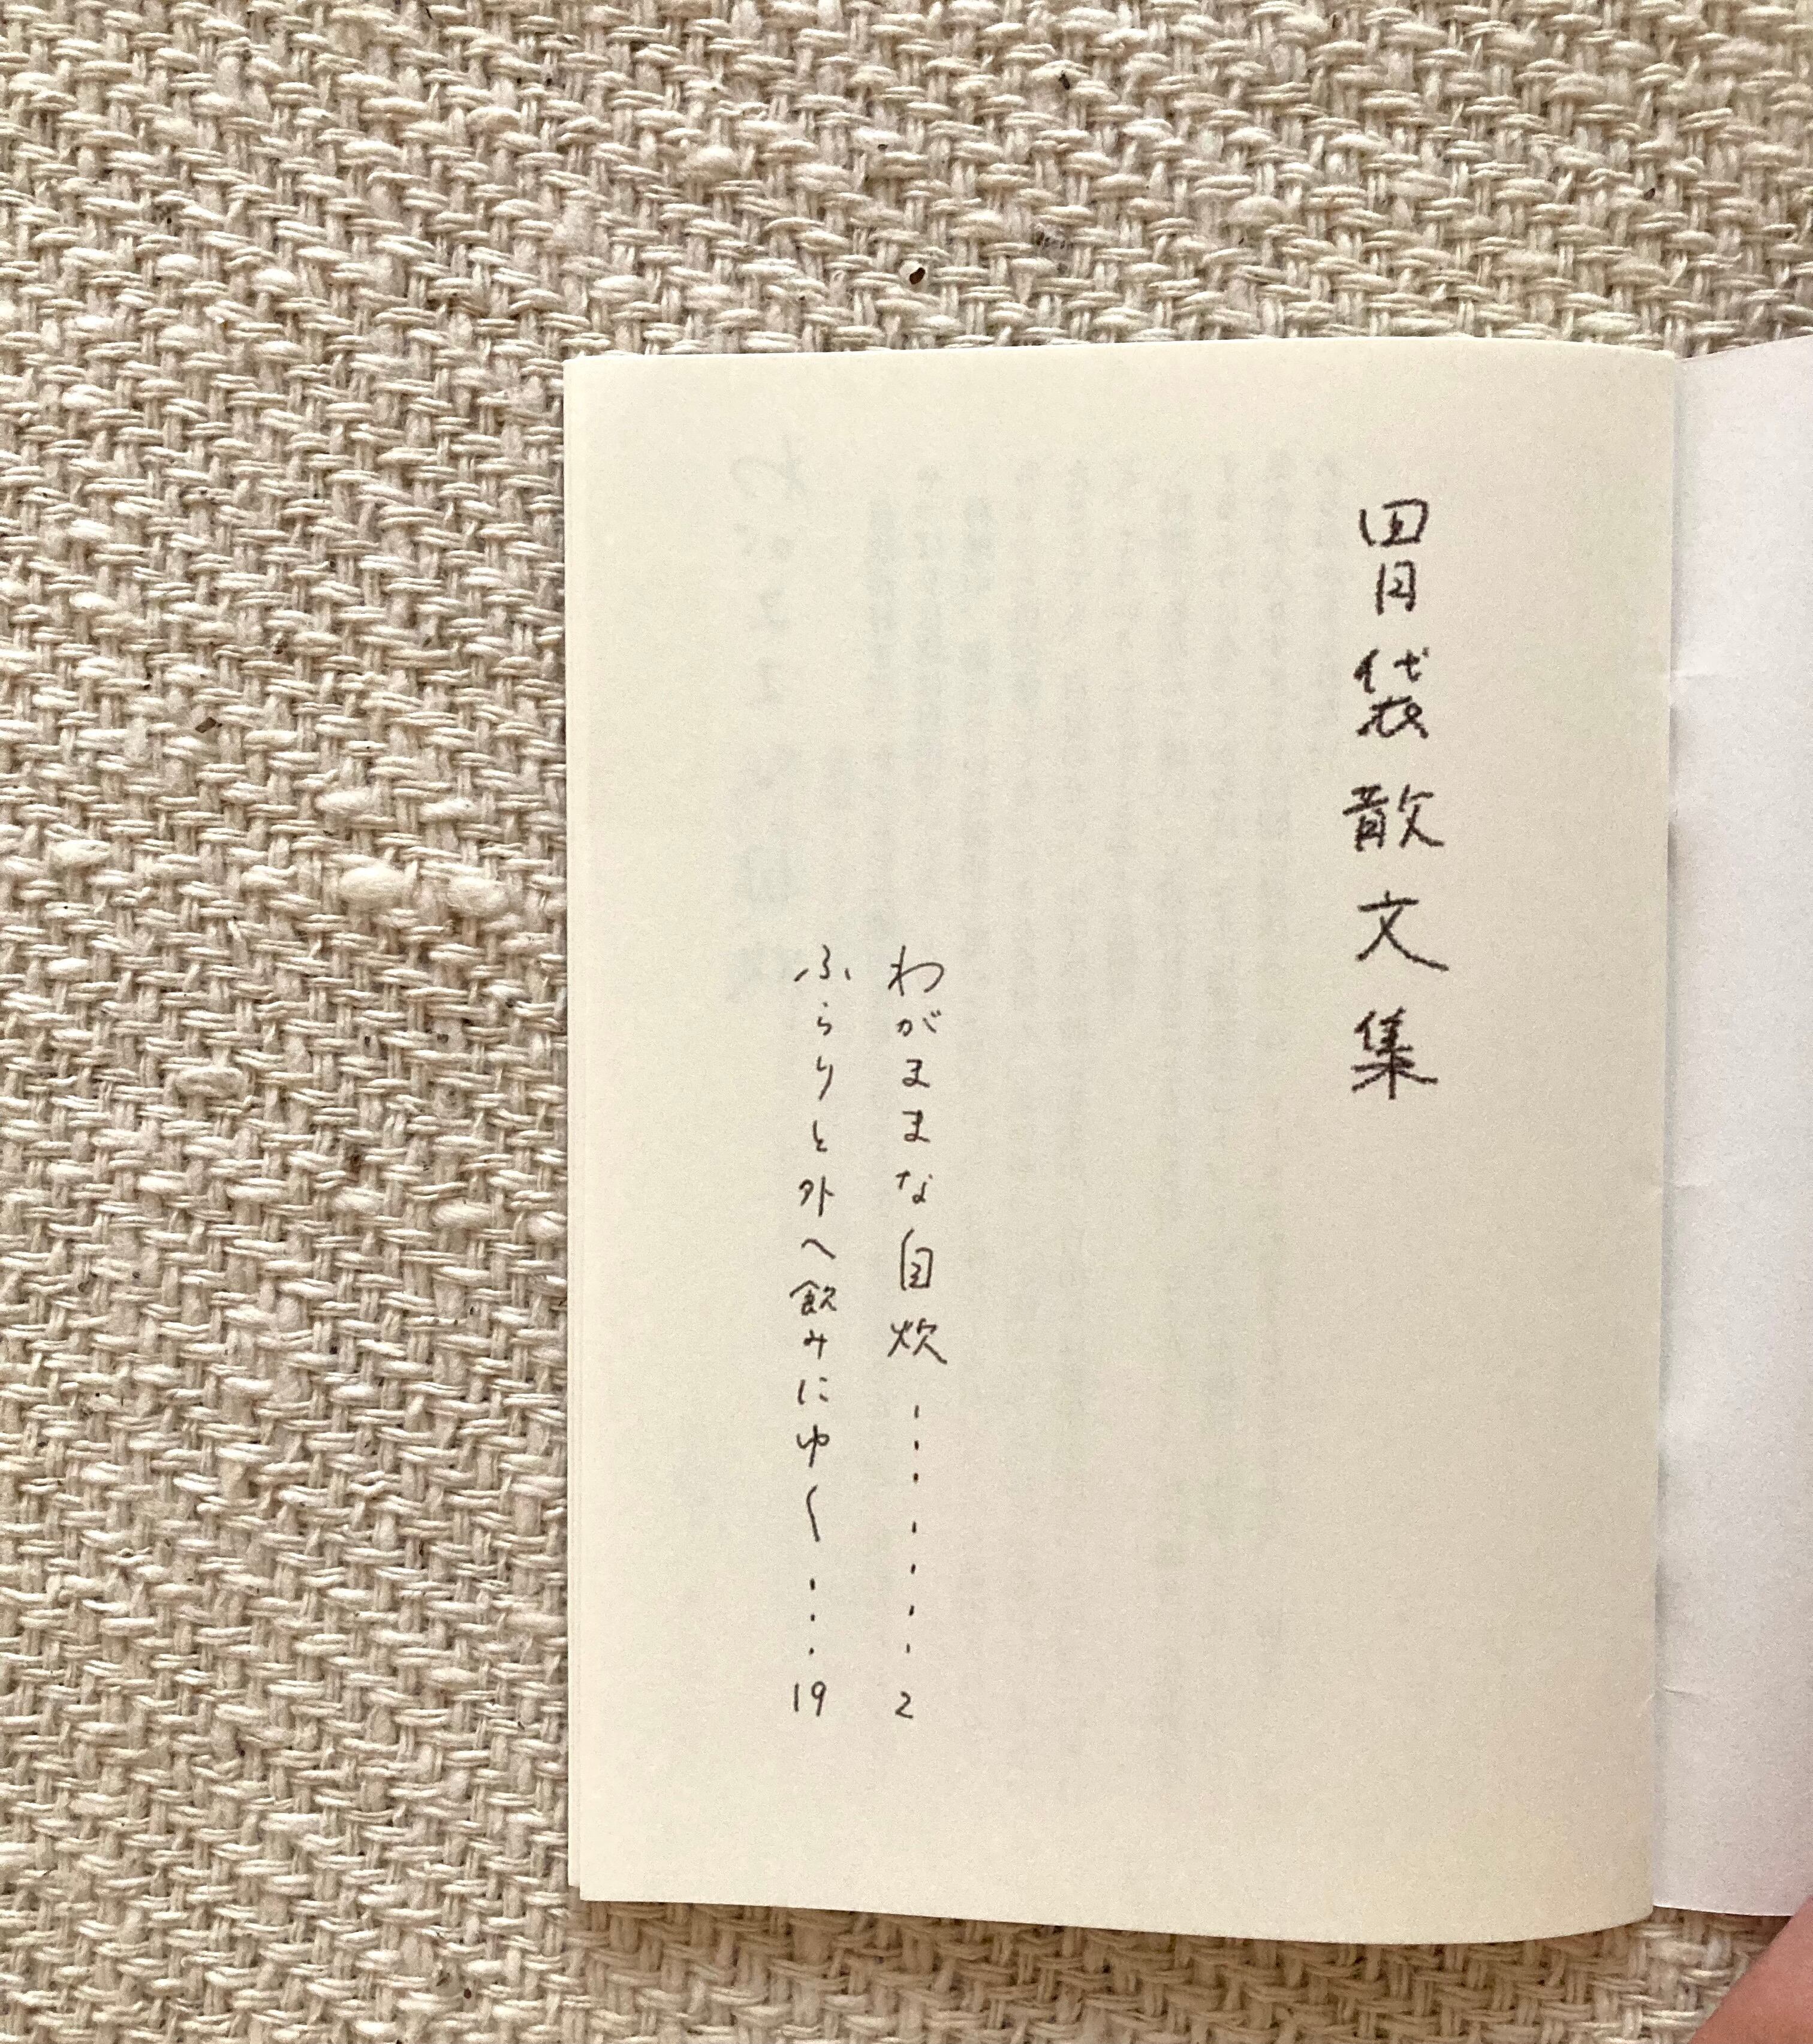 胃袋散文集
わがままな自炊・・・・・・・2
ふらりと外へ飲みにゆく・・・19